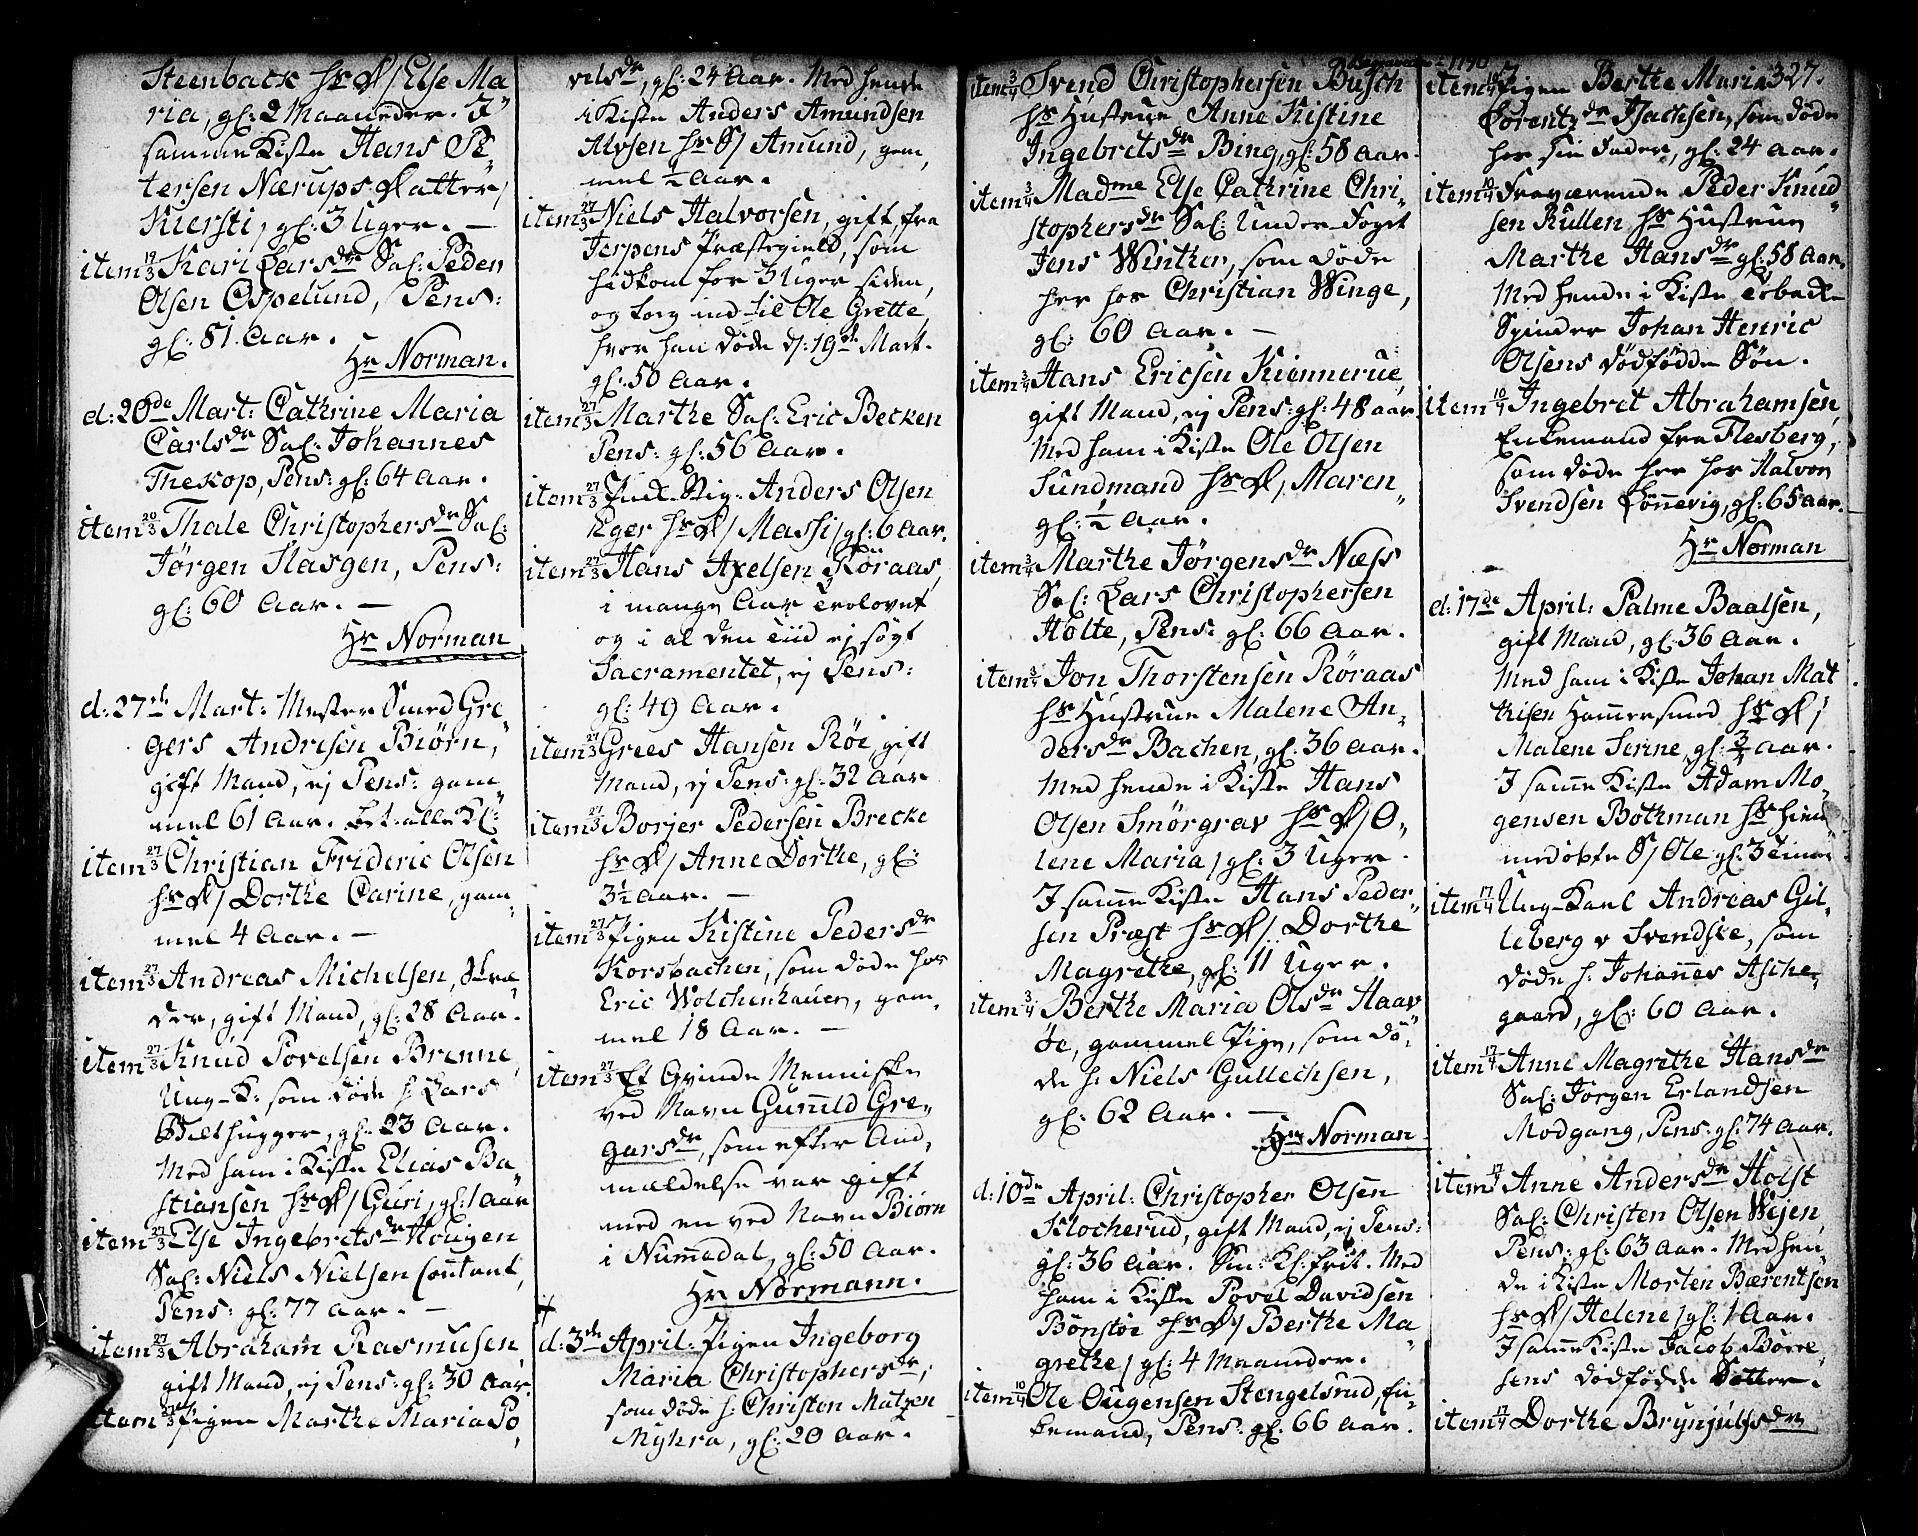 Steenback hr D/ Else Ma
ria, gl: 2 Maaneder. I
samme Kiste Hans Pe
tersen Nærups Datter/
Kiersti, gl: 3 Uger. —
item 19/3 Kari Larsdr Sal: Peder
Olsen Espelund, Pens:
gl: 81 Aar.
Hr Norman.
d: 20de Mart: Cathrine Maria
Carlsdr Sal: Johannes
Theskop, Pens: gl: 64 Aar.
item 20/3 Thale Christophersdr Sal:
Jørgen Hasgen, Pens:
gl: 60 Aar. —
Hr Norman
d: 27de Mart: Mester Smed Gre,,
gers Andresen Biørn,
gift Mand, ej Pens: gam,,
mel 61 Aar. Bet: alle Kl:
item 27/3 Christian Frideric Olsen
hr D/ Dorthe Carine, gam,,
mel 4 Aar. —
item 27/3 Andreas Michelsen, Skræ,,
der, gift Mand, gl: 28 Aar.
item 27/3 Knud Povelsen Brenne,
Ung-K: som døde h: Lars
Bilthugger, gl: 23 Aar.
Med ham i Kiste Elias Ba,,
stiansen hr D/ Guri, gl: 1 Aar
item 27/3 Else Ingebretsdr Hougen
Sal: Niels Nielsen Contant,
Pens: gl: 77 Aar. —
item 27/3 Abraham Rasmusen,
gift Mand, ej Pens: gl: 30 Aar.
item 27/3 Pigen Marthe Maria Po,,
velsdr, gl: 24 Aar. Med hende
i Kiste Anders Amundsen
Alvsen hr S/ Amund, gam,,
mel ½ Aar.
item 27/3 Niels Halvorsen, gift, fra
Jerpens Præstegield, som
hidkom for 3 Uger siden,
og tog ind til Ole Grette,
hvor han døde d: 19de Mart.
gl: 50 Aar.
item 27/3 Marthe Sal: Eric Becken
Pens: gl: 56 Aar.
item 27/3 Anders Olsen
Eger hr D/ Massi/ gl: 6 Aar.
item 27/3 Hans Axelsen Röraas,
i mange Aar trolovet
og i al den tiid ej søgt
Sacramentet, ej Pens:
gl: 49 Aar.
item 27/3 Grees Hansen Röe, gift
Mand, ej Pens: gl: 32 Aar
item 27/3 Borjer Pedersen Brecke
hr D/ Anne Dorthe, gl:
3½ Aar. —
item 27/3 Pigen Kistine Pedersdr
Korsbachen, som døde hos
Eric Wolchenhauer, gam,,
mel 18 Aar. —
item 27/3 Et Qvinde Menniske
ved Navn Gunnild Gre,,
garsdr, som efter And,,
mældelse var gift
med en ved Navn Biørn
i Nummedal, gl: 50 Aar.
Hr Normann.
d: 3de April: Pigen Ingeborg
Maria Christophersdr,
som døde h: Christen Matzen
Myhra, gl: 20 Aar.
Begravede 1790
item 3/4 Svend Christophersen Busch
hs Hustrue Anne Kistine
Ingebretsdr Bing, gl: 58 Aar.
item 3/4 Madme Else Cathrine Chri-
stophersdr Sal: Under-Foget
Jens Winther, som døde
her hos Christian Winge,
gl: 60 Aar. —
item 3/4 Hans Ericsen Kiennerue,
gift Mand, ej Pens: gl: 48 Aar
Med ham i Kiste Ole Olsen
Sundmand hr D/ Maren,,
gl: ½ Aar.
item 3/4 Marthe Jørgensdr Næss
Sal: Lars Christophersen
Holte, Pens: gl: 66 Aar.
item 3/4 Jon Thorstensen Röraas
hs Hustrue Malene An,,
dersdr Bachen, gl: 36 Aar.
Med hende i Kiste Hans
Olsen Smörgrav hr D/ O,,
lene Maria/ gl: 3 Uger.
I samme Kiste Hans Peder,,
sen Præst hr D/ Dorthe
Magrethe, gl: 11 Uger.
item 3/4 Berthe Maria Olsdr Haav
öe, gammel Pige, som dö,,
de h: Niels Gullechsen,
gl: 62 Aar. —
Hr Norman
d: 10de April: Christopher Olsen
Klocherud, gift Mand, ej Pens:
gl: 36 Aar. Sm: Kl: frit. Med
ham i Kiste Povel Davidsen
Bönstöe hr D/ Berthe Ma,,
grethe/ gl: 4 Maaneder.
item 10/4 Ole Ougensen Stengelsrud, En,,
kemand, Pens: gl: 66 Aar.
327.
item 10/4 Pigen Berthe Maria
Lorentzdr Isachsen, som døde
hos sin Fader, gl: 24 Aar.
item 10/4 Fraværende Peder Knud,,
sen Rullen hs Hustrue
Marthe Hansdr gl: 58 Aar.
Med hende i Kiste Tobacks
Spinder Johan Henric
Olsens dødfødde Søn.
item 10/4 Ingebret Abrahamsen,
Enkemand fra Flesberg,
som døde her hos Halvor
Svendsen Lönnevig, gl: 65 Aar.
Hr Norman
d: 17de April: Palme Baalsen,
gift Mand, gl: 36 Aar.
Med ham i Kiste Johan Mat
thisen Hammersmed hr D/
Malene Serine, gl: ¾ Aar.
I samme Kiste Adam Mo,,
gensen Bothman hs hiem,,
medøbte S/ Ole gl: 3 Timer
item 17/4 Ung-Karl Andreas Gil,,
leberg v Svendske, som
døde h: Johannes Asche,,
gaard, gl: 60 Aar.
item 17/4 Anne Magrethe Hansdr
Sal: Jørgen Erlandsen
Modgang, Pens: gl: 74 Aar.
item 17/4 Anne Andersdr Holst
Sal: Christen Olsen Wejen,
Pens: gl: 63 Aar. Med hen,,
de i Kiste Morten Bærentsen
hr D/ Helene/ gl: 1 Aar.
I samme Kiste Jacob Börre,,
sens dødfødde Datter.
item 17/4 Dorthe Brynjulfsdr